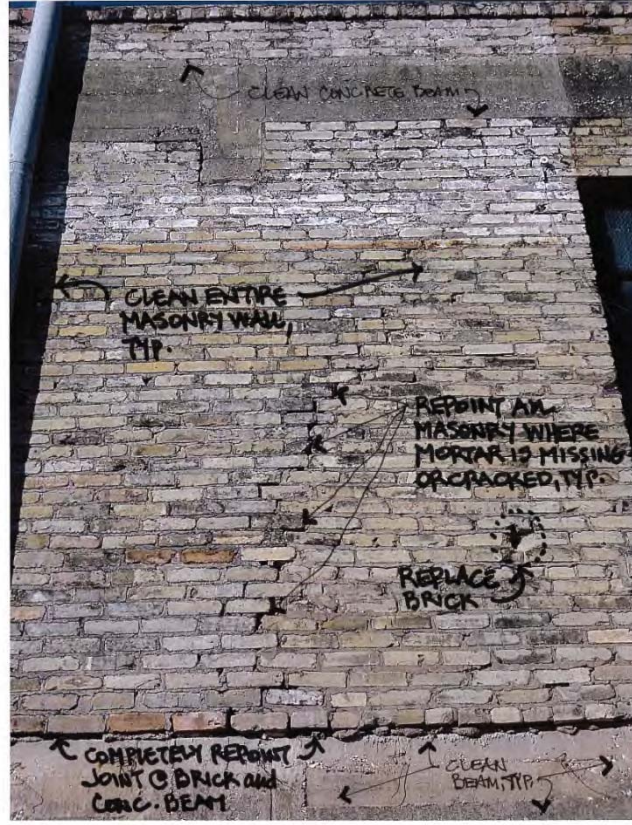 CLEAN CONCRETE BEAM
CLEAN ENTIRE
MASONRY WALL,
TYP.
REPOINT ALL
MASONRY WHERE
MORTAR IS MISSING
OR CRACKED, TYP.
REPLACE
BRICK
COMPLETELY REPOINT
JOINT @ BRICK and
CONC. BEAM
CLEAN
BEAM, TYP.